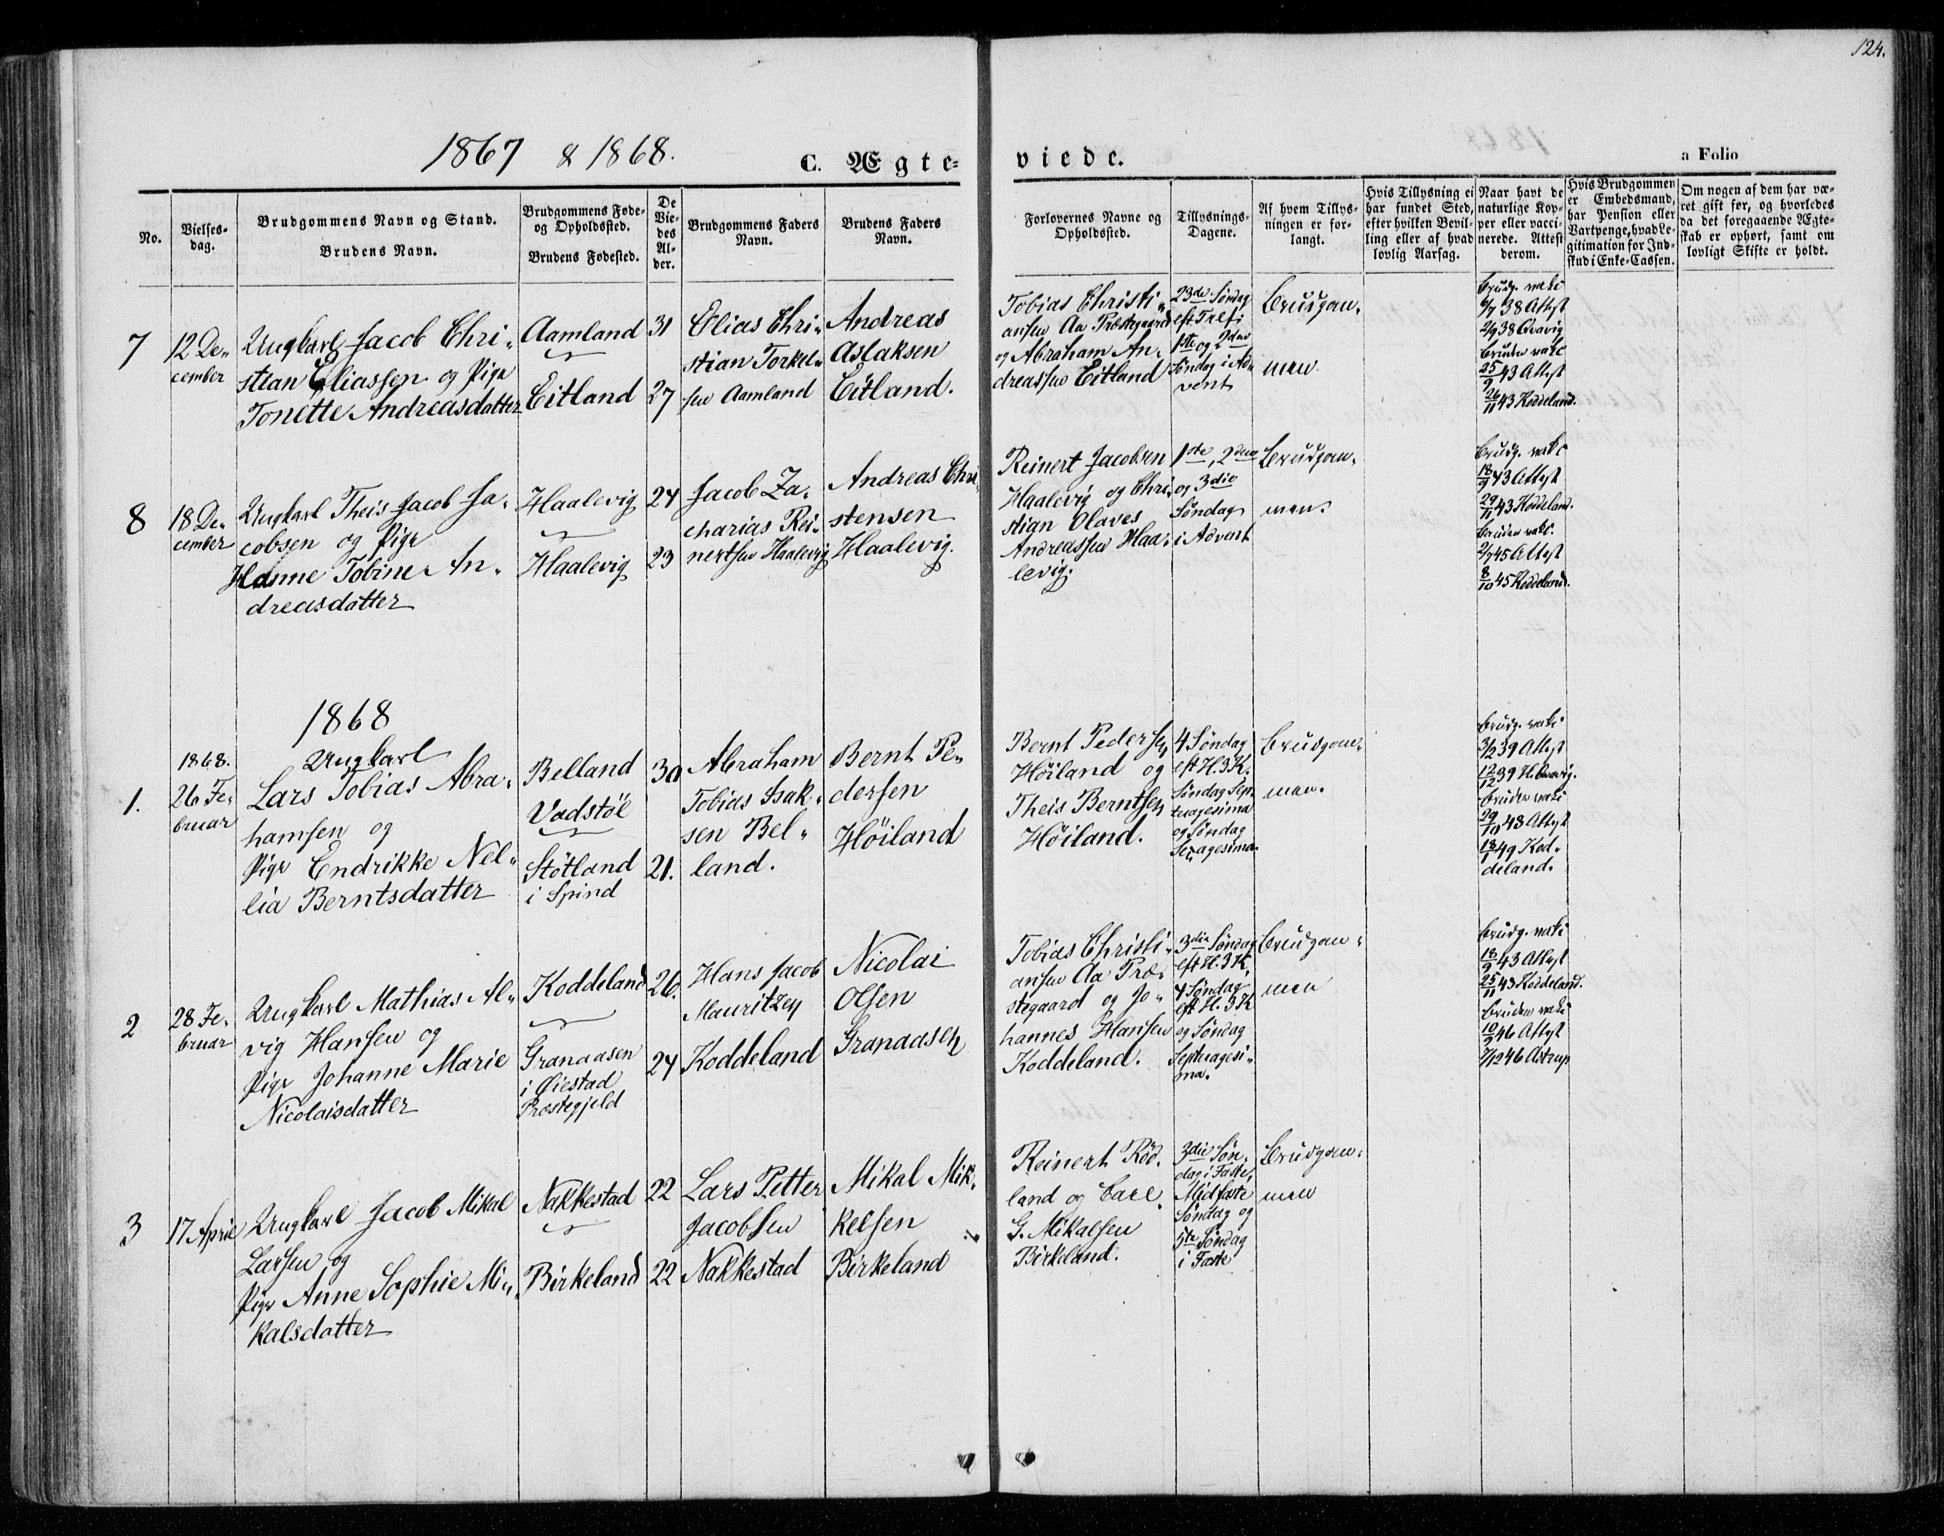 124.
1867 & 1868.
C. Ægte=
viede.
a Folio
No.
Vielses-
dag.
Brudgommens Navn og Stand.
Brudens Navn.
Brudgommens Føde-
og Opholdssted.
Brudens Fødested.
De
Vie-
des
Al-
der.
Brudgommens Faders
Navn.
Brudens Faders
Navn.
Forlovernes Navne og
Opholdssted.
Tillysnings-
Dagene.
Af hvem Tillys-
ningen er for-
langt.
Hvis Tillysning ei
har fundet Sted,
efter hvilken Bevil-
ling eller af hvad
lovlig Aarsag.
Naar havt de
naturlige Kop-
per eller vacci-
nerede. Attest
derom.
Hvis Brudgommen
er Embedsmand,
har Pension eller
Vartpenge, hvad Le-
gitimation for Ind-
skud i Enke-Cassen.
Om nogen af dem har væ-
ret gift før, og hvorledes
da det foregaaende Ægte-
skab er ophørt, samt om
lovligt Skifte er holdt.
7
12 De-
cember
Ungkarl Jacob Chri-
stian Eliassen og Pige
Tonette Andreasdatter
Aamland
Eitland
31
27
Elias Chri-
stian Torkel-
sen Aamland
Andreas
Aslaksen
Eitland.
Tobias Christi-
ansen Aa Præstegaard
og Abraham An-
dreassen Eitland
23de Søndag
eft Tref:
1ste og 2den
Søndag i Ad-
vent
Brudgom-
men
Brudg. vakc
6/7 38 Attest
2/9 38 Qvavig
Bruden vakc
25/9 43 Attest
26/11 43 Koddeland.
8
18 De-
cember
Ungkarl Theis Jacob Ja-
cobsen og Pige
Hanne Tobine An-
dreasdatter
Haalevig
Haalevig
24
23
Jacob Za-
charias Rei-
nertsen Haalevig
Andreas Chri-
stensen
Haalevig.
Reinert Jacobsen
Haalevig og Chri-
stian Olaves
Andreassen Haa-
levig.
1ste, 2den
og 3die
Søndag
i Advent
Brudgom-
men.
Brudg. vakc
18/9 43 Attest
29/11 43 Koddeland.
Bruden vakc.
2/9 45 Attest
8/10 45 Koddeland.
1868
1.
1868.
26 Fe-
bruar
Ungkarl
Lars Tobias Abra-
hamsen og
Pige Endrikke Nel-
lia Berntsdatter
Belland
Vadstøl
Støtland
i Spind
30
21.
Abraham
Tobias Isak-
sen Bel-
land.
Bernt Pe-
dersen
Høiland
Bernt Pedersen
Høiland og
Theis Berntsen
Høiland.
4 Søndag
eft H. 3 K.
Søndag Sep-
tuagesima
og Søndag
Sexagesima.
Brudgom-
men.
Brudg. vakc
3/9 39 Attest
12/12 39
Bruden vakc
29/10 48 Attest
13/1 49 Kod-
deland.
2
28 Fe-
bruar
Ungkarl Mathias Al-
vig Hansen og
Pige Johanne Marie
Nicolaisdatter
Koddeland
Granaasen
i Øiestad
Præstegjeld
26.
24
Hans Jacob
Mauritzen
Koddeland
Nicolai
Olsen
Granaasen
Tobias Christi-
ansen Aa Præ-
stegaard og Jo-
hannes Hansen
Koddeland.
3die Søndag
eft H. 3 K,
4 Søndag
eft H. 3 K
og Søndag
Septuagesi-
ma.
Brudgom-
men
Brudg. vakc
18/9 43 Attest
25/11 43 Koddeland.
Bruden vakc
10/9 46 Attest
7/12 46 Astrup
3
17 April
Ungkarl Jacob Mikal
Larsen og
Pige Anne Sophie Mi-
kalsdatter
Nakkestad
Birkeland
22
22
Lars Petter
Jacobsen
Nakkestad
Mikal Mik-
kelsen
Birkeland
Reinert Röd-
land og Carl
G. Mikalsen
Birkeland.
3die Søn-
dag i Faste,
Midfaste
Søndag og
5te Søndag
i Faste
Brudgom-
men